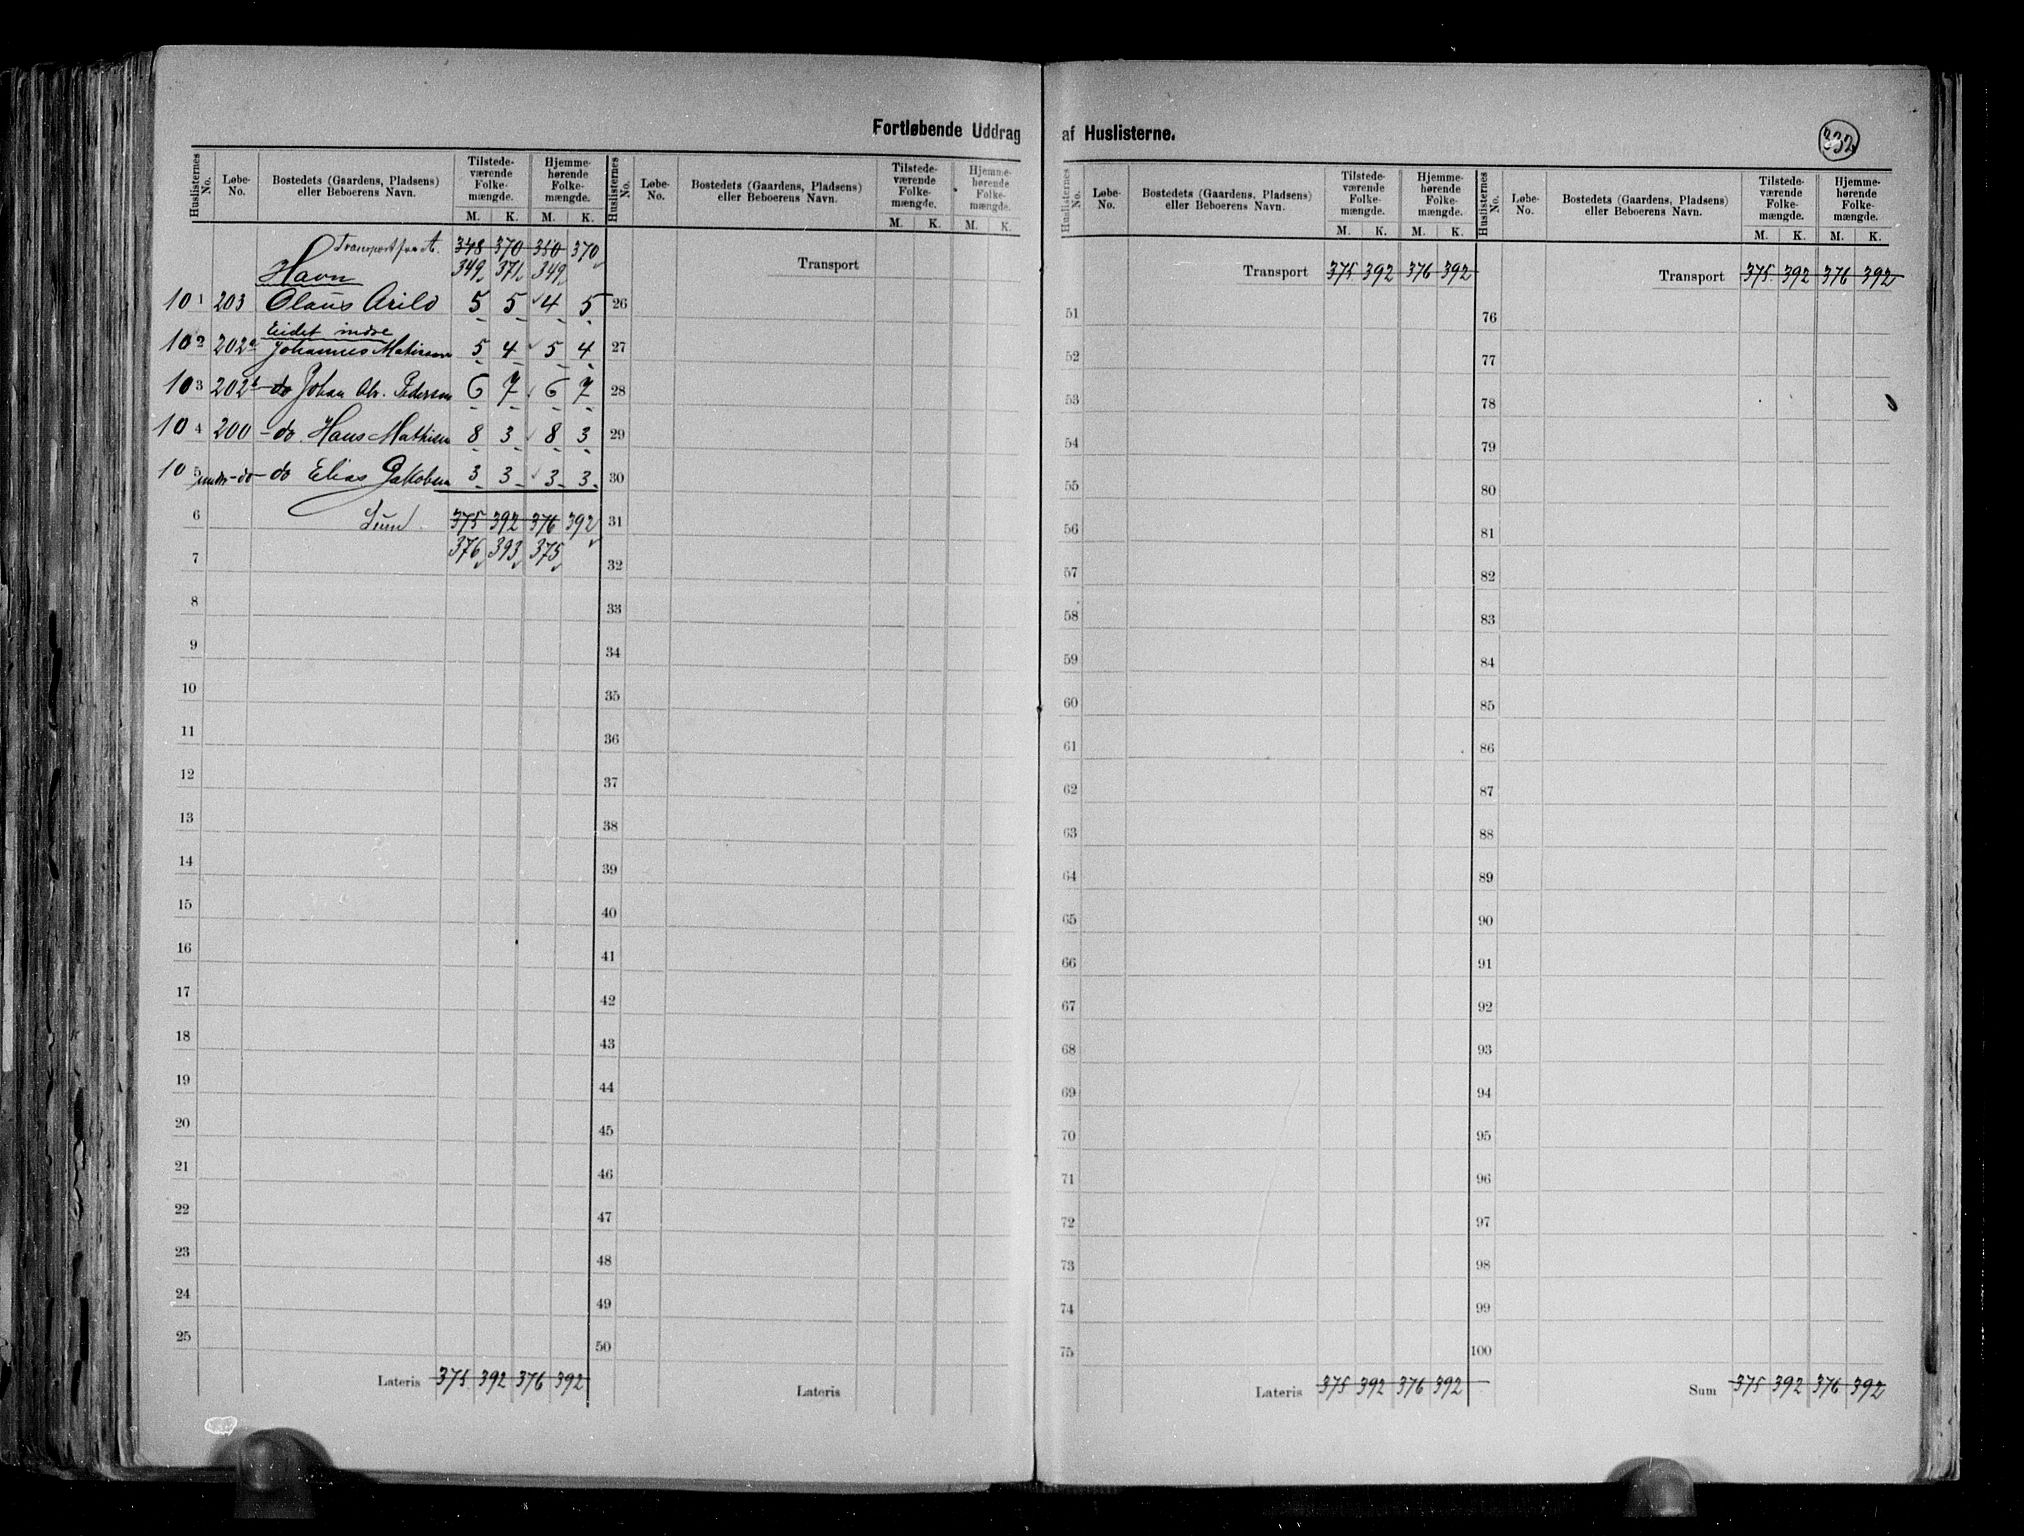 Fortløbende Uddrag af Huslisterne.
332
Huslisternes No. Løbe-No. Bostedets (Gaardens, Pladsens) eller Beboerens Navn. Tilstedeværende Folkemængde. M. K. Hjemmehørende Folkemængde. M. K.
Huslisternes No. Løbe-No. Bostedets (Gaardens, Pladsens) eller Beboerens Navn. Tilstedeværende Folkemængde. M. K. Hjemmehørende Folkemængde. M. K.
Huslisternes No. Løbe-No. Bostedets (Gaardens, Pladsens) eller Beboerens Navn. Tilstedeværende Folkemængde. M. K. Hjemmehørende Folkemængde. M. K.
Huslisternes No. Løbe-No. Bostedets (Gaardens, Pladsens) eller Beboerens Navn. Tilstedeværende Folkemængde. M. K. Hjemmehørende Folkemængde. M. K.
Transport fra A. 348 370 350 370
Havn 349 371 349
10 1 203 Olaus Arild 5 5 4 5
Eidet indre
10 2 202a Johannes Mathisen 5 4 5 4
10 3 202b do Johan Chr. Pedersen 6 7 6 7
10 4 200 - do. Hans Mathisen 8 3 8 3
10 5 under - do - do Elias Jakobsen 3 3 3 3
6 Sum 375 392 376 392
376 393 375
7
8
9
10
11
12
13
14
15
16
17
18
19
20
21
22
23
24
25
Lateris 375 392 376 392
Transport
26
27
28
29
30
31
32
33
34
35
36
37
38
39
40
41
42
43
44
45
46
47
48
49
50
Lateris
Transport 375 392 376 392
51
52
53
54
55
56
57
58
59
60
61
62
63
64
65
66
67
68
69
70
71
72
73
74
75
Lateris 375 392 376 392
Transport 375 392 376 392
76
77
78
79
80
81
82
83
84
85
86
87
88
89
90
91
92
93
94
95
96
97
98
99
100
Sum 375 392 376 392